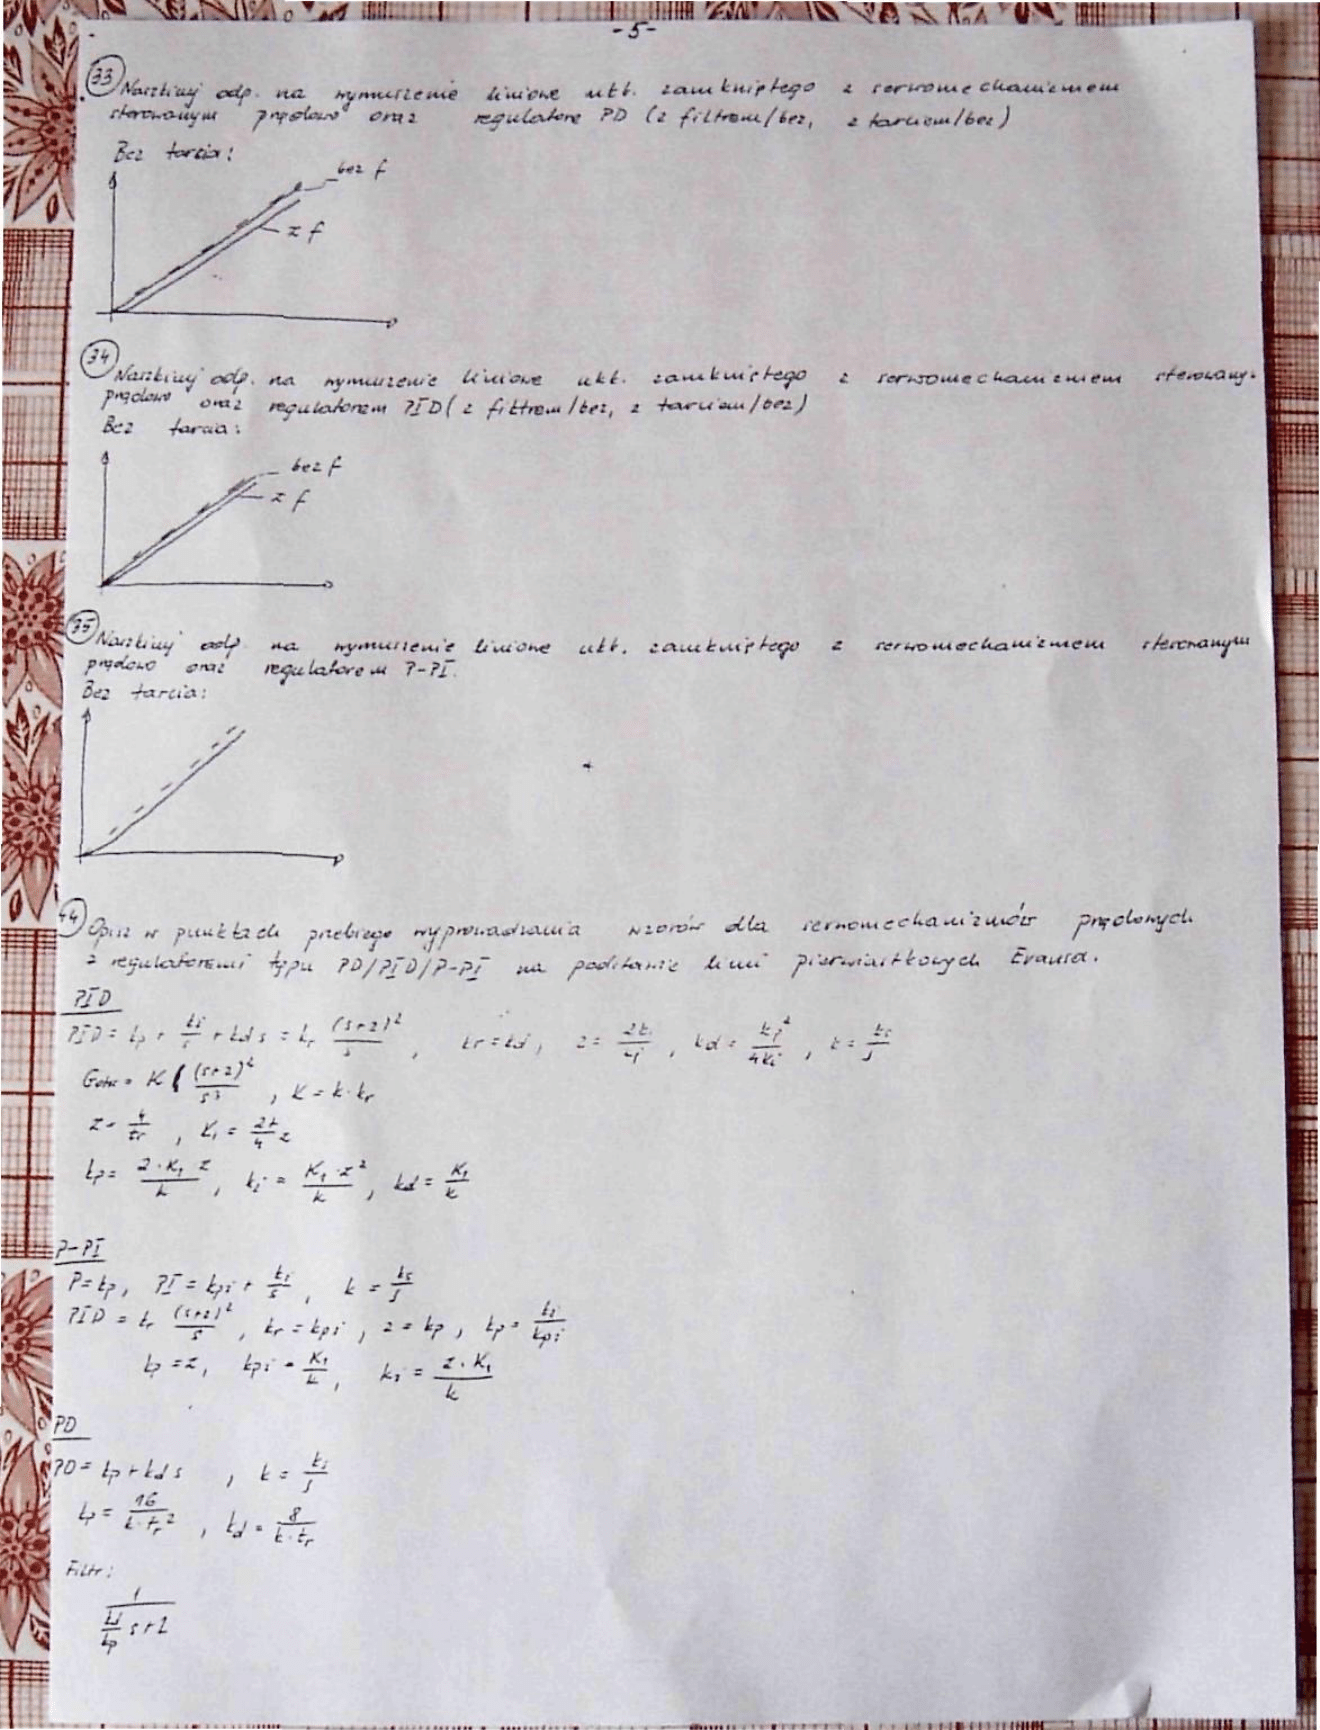 -5-
33 Naszkicuj odp. na wymuszenie liniowe ukł. zamkniętego z serwomechanizmem
sterowanym prądowo oraz regulatore PD (z filtrem/bez, z tarciem/bez)
Bez tarcia:
bez f
z f
34 Naszkicuj odp. na wymuszenie liniowe ukł. zamkniętego z serwomechanizmem sterowany
prądowo oraz regulatorem PID (z filtrem/bez, z tarciem/bez)
Bez tarcia:
bez f
z f
35 Naszkicuj odp. na wymuszenie liniowe ukł. zamkniętego z serwomechanizmem sterowanym
prądowo oraz regulatorem P-PI.
Bez tarcia:
44 Opisz w punktach przebieg wyprowadzania wzorów dla serwomechanizmów prądowych
z regulatorami typu PD/PID/P-PI na podstawie linii pierwiastkowych Evansa.
PID
PID = kp + ki/s + kd s = kr (s+z)²/s , kr = kd , z = 2ki/kp , kd = kp²/4ki , k = ks/J
Gotw = K (s+z)²/s³ , K = k·kr
z = 4/tr , K₁ = 27/4 z
kp = 2·K₁·z/k , ki = K₁·z²/k , kd = K₁/k
P-PI
P = kp, PI = kpi + ki/s , k = ks/J
PID = kr (s+z)²/s , kr = kpi , z = kp , kp = ki/kpi
kp = z, kpi = K₁/k , ki = z·K₁/k
PD
PD = kp + kd s , k = ks/J
kp = 16/k·tr² , kd = 8/k·tr
Filtr:
1
kd/kp s+1